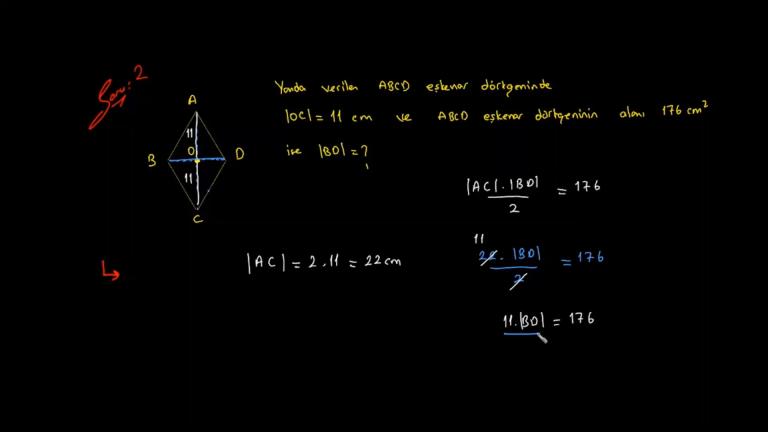 Soru: 2
Yanda verilen ABCD eşkenar dörtgeninde
|OC| = 11 cm ve ABCD eşkenar dörtgeninin alanı 176 cm²
ise |BD| = ?
A
11
B O D
11
C
|AC| . |BD| / 2 = 176
|AC| = 2 . 11 = 22 cm
11
22 . |BD| / 2 = 176
11 . |BD| = 176